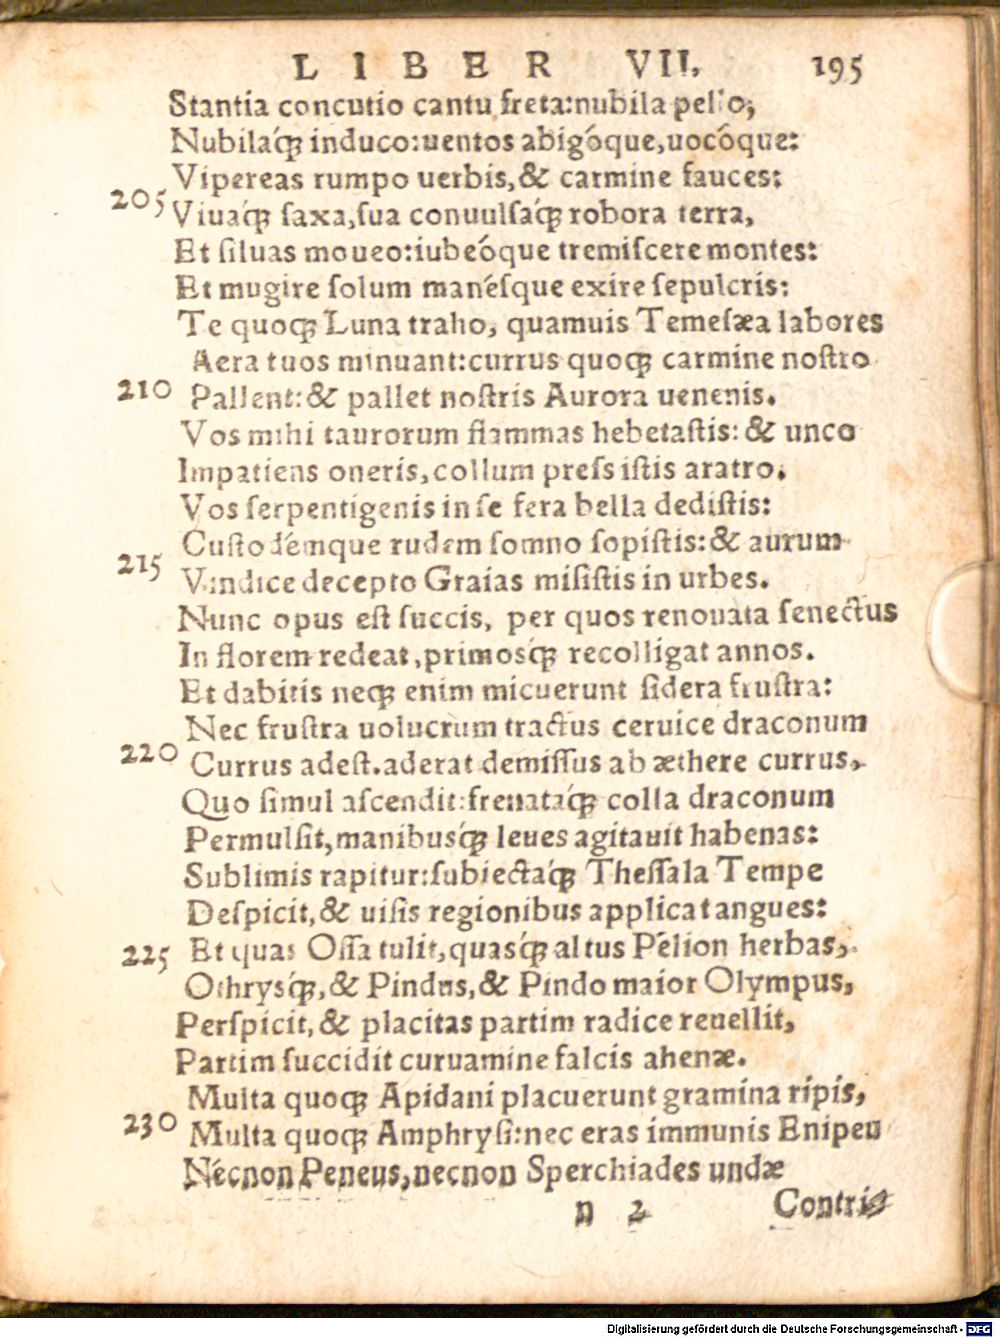 LIBER VII. 195
Stantia concutio cantu freta:nubila pello,
Nubilaq́ꝫ induco:uentos abigóque,uocóque:
Vipereas rumpo uerbis,& carmine fauces:
205 Viuaq́ꝫ ſaxa,ſua conuulſaq́ꝫ robora terra,
Et ſiluas moueo:iubeóque tremiſcere montes:
Et mugire ſolum manéſque exire ſepulcris:
Te quoqꝫ Luna traho, quamuis Temeſæa labores
Aera tuos minuant:currus quoqꝫ carmine noſtro
210 Pallent:& pallet noſtris Aurora uenenis.
Vos mihi taurorum flammas hebetaſtis:& unco
Impatiens oneris,collum preſsiſtis aratro.
Vos ſerpentigenis in ſe fera bella dediſtis:
Cuſtodémque rudem ſomno ſopiſtis:& aurum
215 Vindice decepto Graias miſiſtis in urbes.
Nunc opus eſt ſuccis, per quos renouata ſenectus
In florem redeat,primosq́ꝫ recolligat annos.
Et dabitis neqꝫ enim micuerunt ſidera fruſtra:
Nec fruſtra uolucrum tractus ceruice draconum
220 Currus adeſt.aderat demiſſus ab æthere currus,
Quo ſimul aſcendit:frenataq́ꝫ colla draconum
Permulſit,manibusq́ꝫ leues agitauit habenas:
Sublimis rapitur:ſubiectaq́ꝫ Theſſala Tempe
Deſpicit,& uiſis regionibus applicat angues:
225 Et quas Oſſa tulit,quasq́ꝫ altus Pélion herbas,
Othrysq́ꝫ,& Pindus,& Pindo maior Olympus,
Perſpicit,& placitas partim radice reuellit,
Partim ſuccidit curuamine falcis ahenæ.
Multa quoqꝫ Apidani placuerunt gramina ripis,
230 Multa quoqꝫ Amphryſi:nec eras immunis Enipeu
Nécnon Peneus,necnon Sperchiades undæ
n 2 Contri
Digitalisierung gefördert durch die Deutsche Forschungsgemeinschaft - DFG